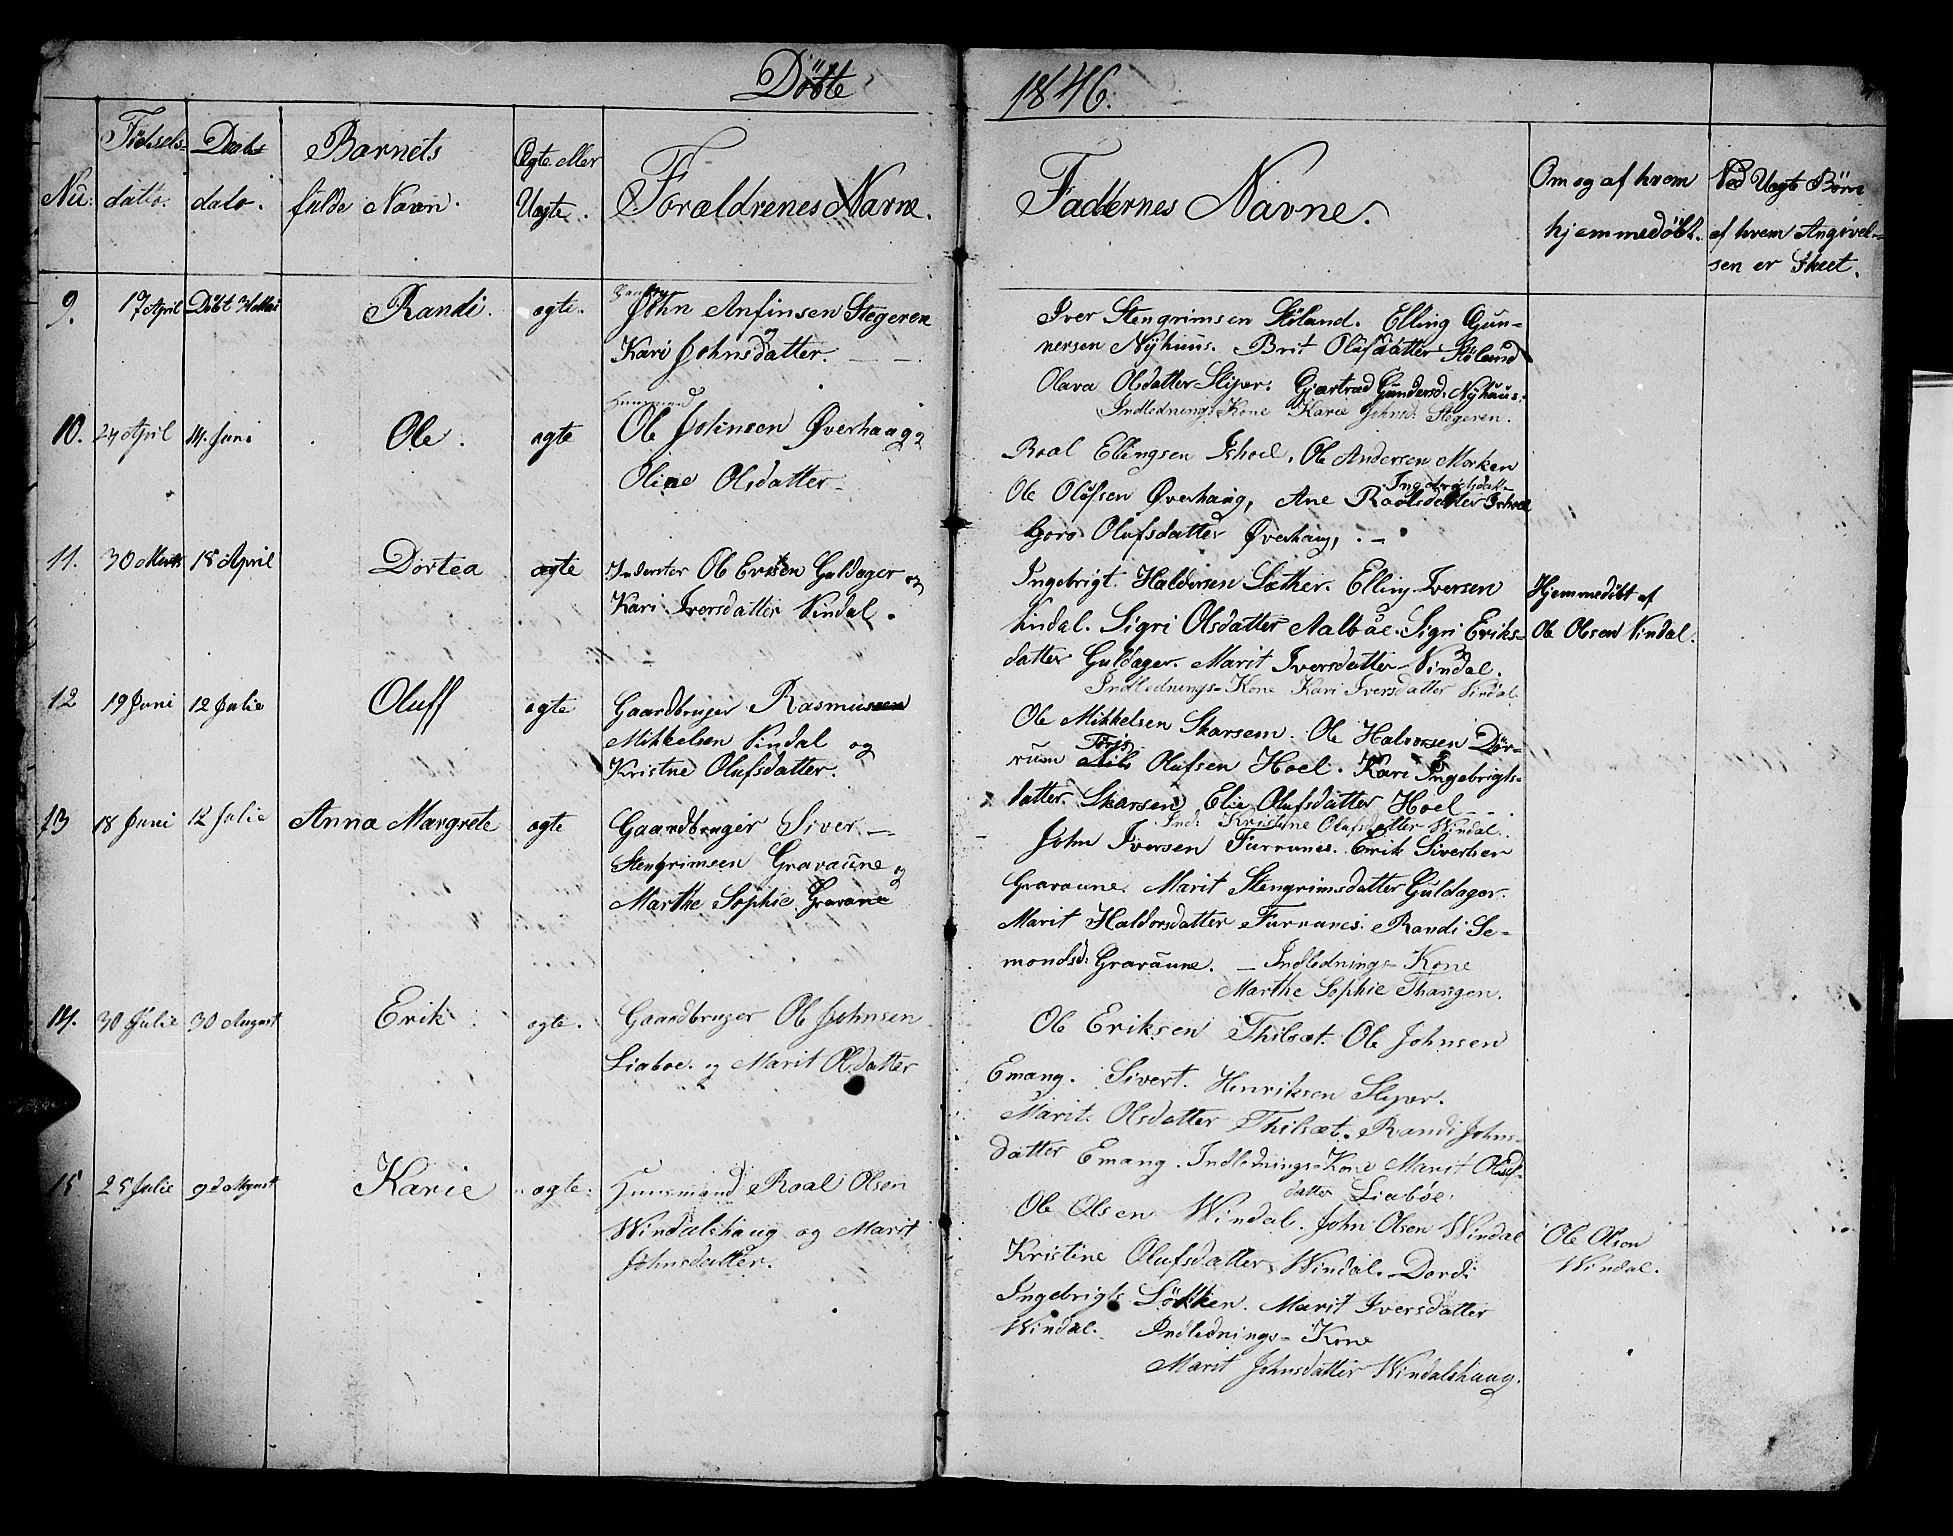 Döbte
1846.
Nü:
Födsels-
datto.
Daabs
dato.
Barnets
fulde Navn.
Ægte eller
Uægte.
Forældrenes Navne.
Faddernes Navne.
Om og af hvem
hjemmedøbt.
Ved Uægte Børn
af hvem Angivel-
sen er skeet.
9.
17 April
Döbt
Randi.
ægte.
John Anfinsen Stegeren
og
Kari Johnsdatter.
Iver Stengrimsen Stöland. Elling Gun-
nersen Nyhuus. Brit Olufsdatter Stöland
Olava Olsdatter Slipar. Gjærtrud Gundersd. Nyhuus.
Indlednings-Kone Karie Johnsd: Stegeren.
10.
24 April
14. Juni
Ole.
ægte
Huusmand
Ole Johnsen Øverhaug
Oline Olsdatter
Roal Ellingsen Ishoel. Ole Andersen Morken
Ole Olufsen Øverhaug, Ane Raalsdatter Ishoel
Goro Olufsdatter Øverhaug.
11.
30 Marts
18 April
Dortea
ægte
Inderster Ole Eriksen Guldager og
Kari Iversdatter Vindal.
Ingebrigt Haldorsen Sæther. Elling Iversen
Vindal. Sigri Olsdatter Aalbøe. Sigri Eriks-
datter Guldager. Marit Iversdatter Vindal.
Indlednings-Kone Kari Iversdatter Vindal
Hjemmedöbt af
Ole Olsen Vindal.
12
19 Juni
12 Julie
Oluff
ægte
Gaardbruger Rasmussen
Mikkelsen Vindal og
Kristne Olufsdatter.
Ole Mikkelsen Skarsem. Ole Halvorsen Dör-
rum Toris Nils Olufsen Hoel. Kari Ingebrigts-
datter Skarsem Elie Olufsdatter Hoel
Ind: Kristine Olufsdatter Windal.
13
18 Juni
12 Julie
Anna Margrete
ægte
Gaardbruger Siver
Stengrimsen Gravaune og
Marthe Sophie Gravane
John Iversen Furrunes. Erik Sivertsen
Gravaune. Marit Stengrimsdatter Guldager.
Marit Haldorsdatter Furrunes. Randi Se-
mondsd: Gravaune. - Indlednings-Kone
Marthe Sophie Thangen.
14.
30 Julie
30 August
Erik
ægte.
Gaardbruger Ole Johnsen
Liaboe. og Marit Olsdatter
Ole Eriksen Thilset. Ole Johnsen
Emang. Sivert Henriksen Slipar.
Marit Olsdatter Thilsæt. Randi Johns-
datter Emang. Indlednings-Kone Marit Oluf-
datter Liaböe.
15
25 Julie
9de August
Karie
ægte.
Huusmand Roal Olsen
Windalshaug og Marit
Johnsdatter.
Ole Olsen Windal. John Olsen Windal
Kristine Olufsdatter Windal. Dordi
Ingebrigts Lökken. Marit Iversdatter
Windal. Indlednings-Kone
Marit Johnsdatter Windalshaug.
Ole Olsen
Windal.